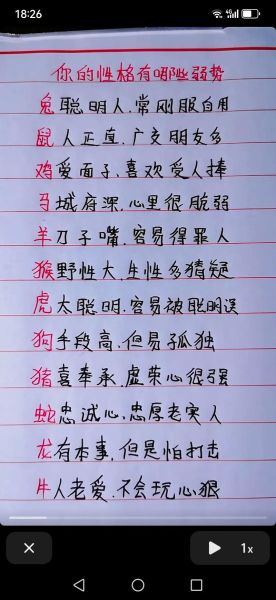 18:26
你的性格有哪些弱势
兔聪明人,常刚服自用
鼠人正直,广交朋友多
鸡爱面子,喜欢受人捧
马城府深,心里很脆弱
羊刀子嘴,容易得罪人
猴野性大,生性多猜疑
虎太聪明,容易被聪明误
狗手段高,但易孤独
猪喜奉承,虚荣心很强
蛇忠诚心,忠厚老实人
龙有本事,但是怕打击
牛人老爱,不会玩心狠
1x